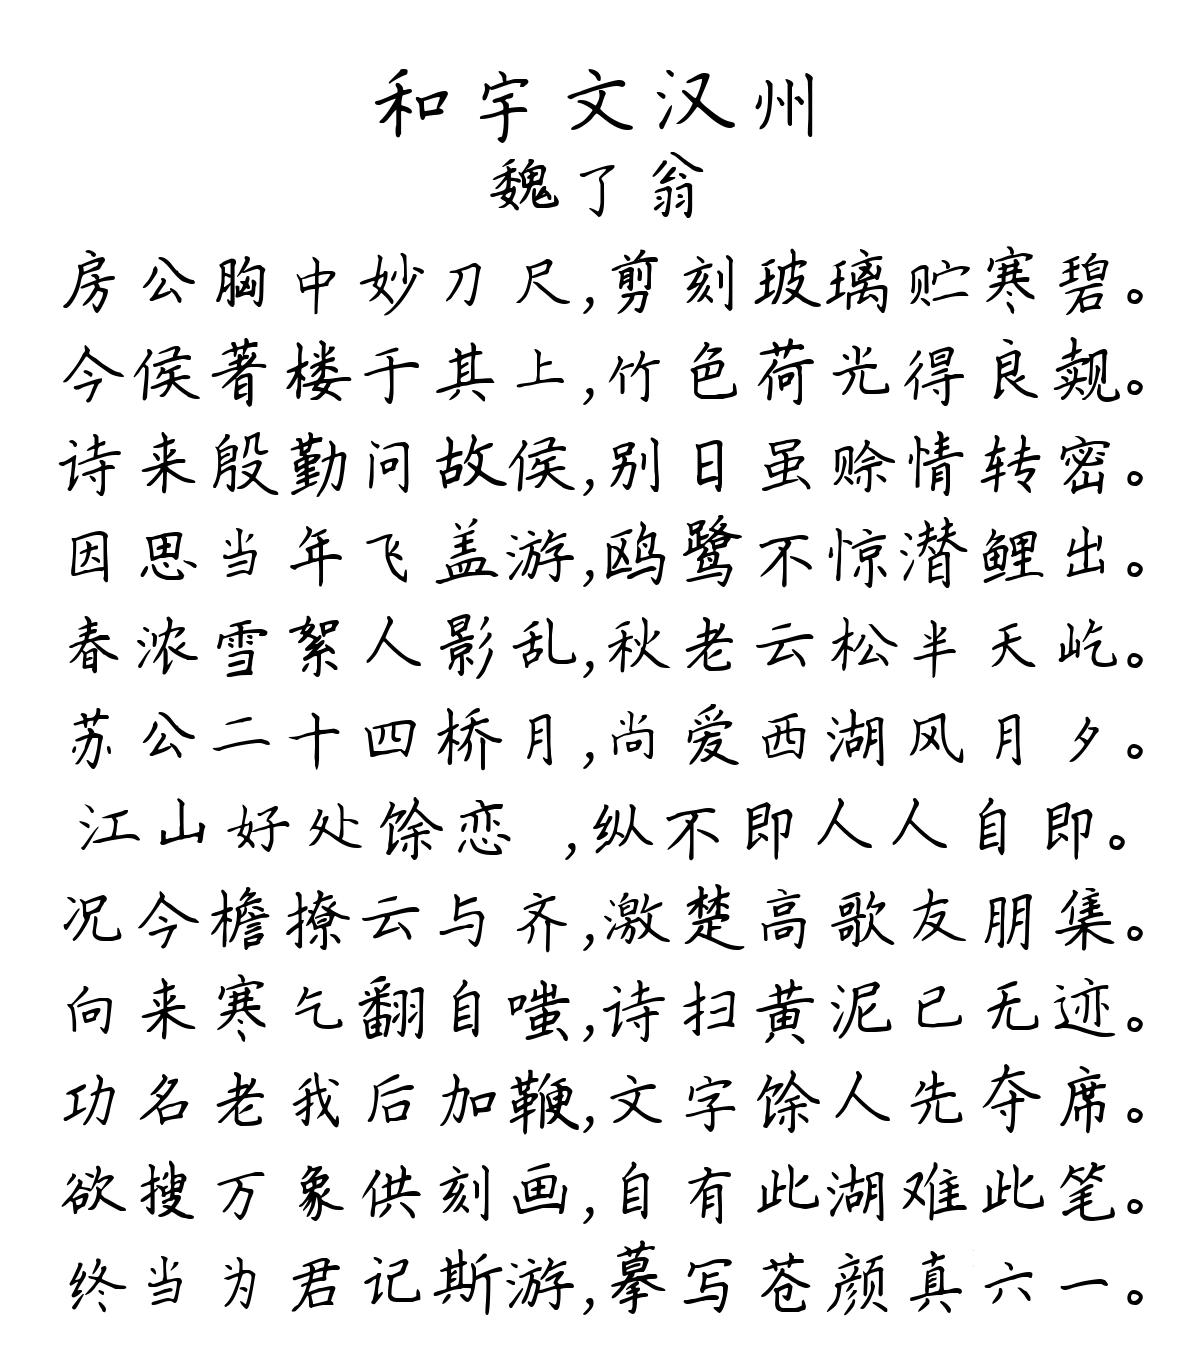 和宇文汉州
魏了翁
房公胸中妙刀尺,剪刻玻璃贮寒碧。
今侯著楼于其上,竹色荷光得良觌。
诗来殷勤问故侯,别日虽赊情转密。
因思当年飞盖游,鸥鹭不惊潜鲤出。
春浓雪絮人影乱,秋老云松半天屹。
苏公二十四桥月,尚爱西湖风月夕。
江山好处馀恋 ,纵不即人人自即。
况今檐撩云与齐,激楚高歌友朋集。
向来寒乞翻自嗤,诗扫黄泥已无迹。
功名老我后加鞭,文字馀人先夺席。
欲搜万象供刻画,自有此湖难此笔。
终当为君记斯游,摹写苍颜真六一。